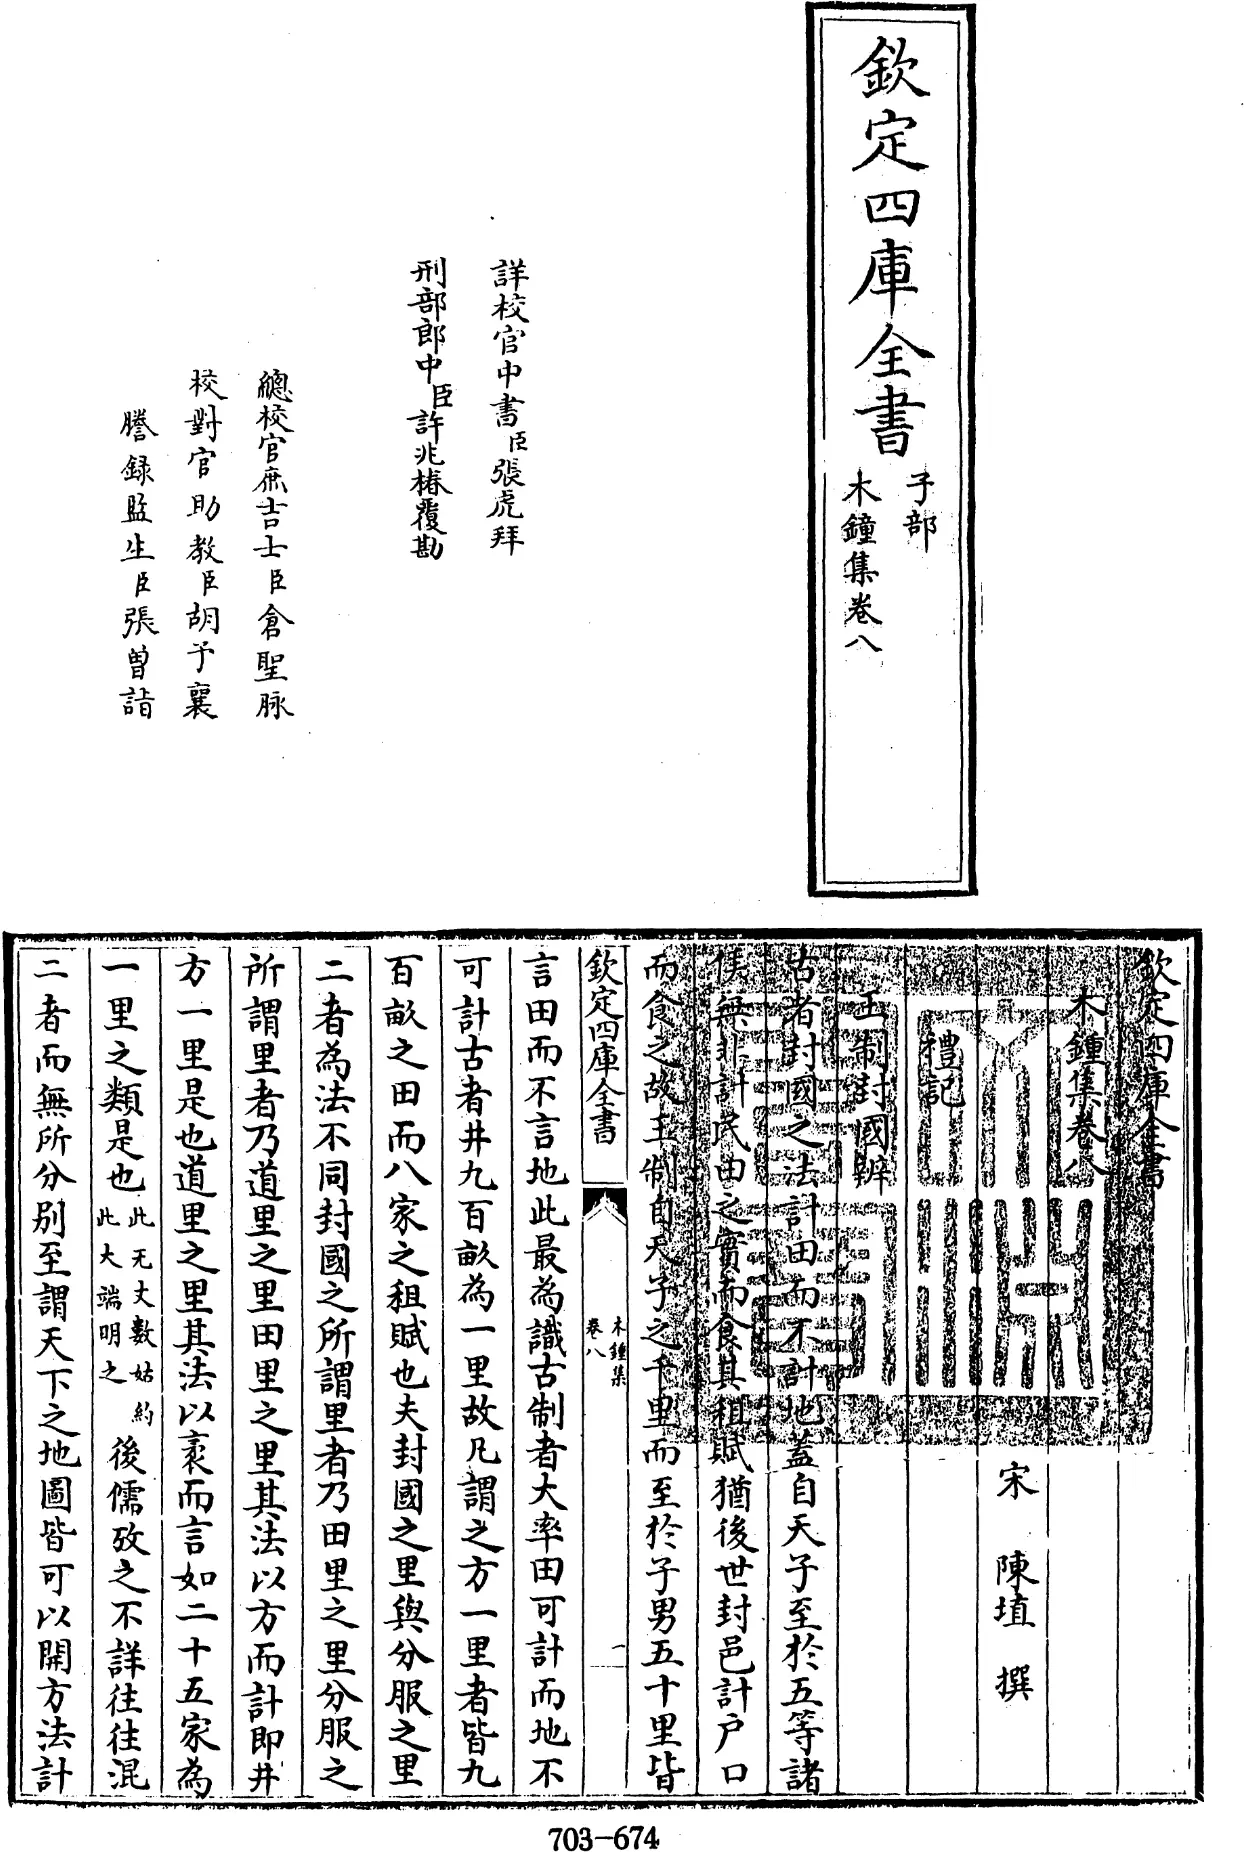 欽定四庫全書
子部
木鐘集卷八
詳校官中書臣張虎拜
刑部郎中臣許兆椿覆勘
總校官庶吉士臣倉聖脉
校對官助教臣胡予襄
謄錄監生臣張曾詣
欽定四庫全書
木鍾集卷八
宋 陳埴 撰
禮記
王制封國辨
古者封國之法計田而不計地蓋自天子至於五等諸
侯無非計民田之實而食其租賦猶後世封邑計户口
而食之故王制自天子之千里而至於子男五十里皆
欽定四庫全書
木鍾集
卷八
一
言田而不言地此最為識古制者大率田可計而地不
可計古者井九百畝為一里故凡謂之方一里者皆九
百畝之田而八家之租賦也夫封國之里與分服之里
二者為法不同封國之所謂里者乃田里之里分服之
所謂里者乃道里之里田里之里其法以方而計即井
方一里是也道里之里其法以袤而言如二十五家為
一里之類是也此无丈數姑約此大端明之後儒攷之不詳往往混
二者而無所分别至謂天下之地圖皆可以開方法計
703-674